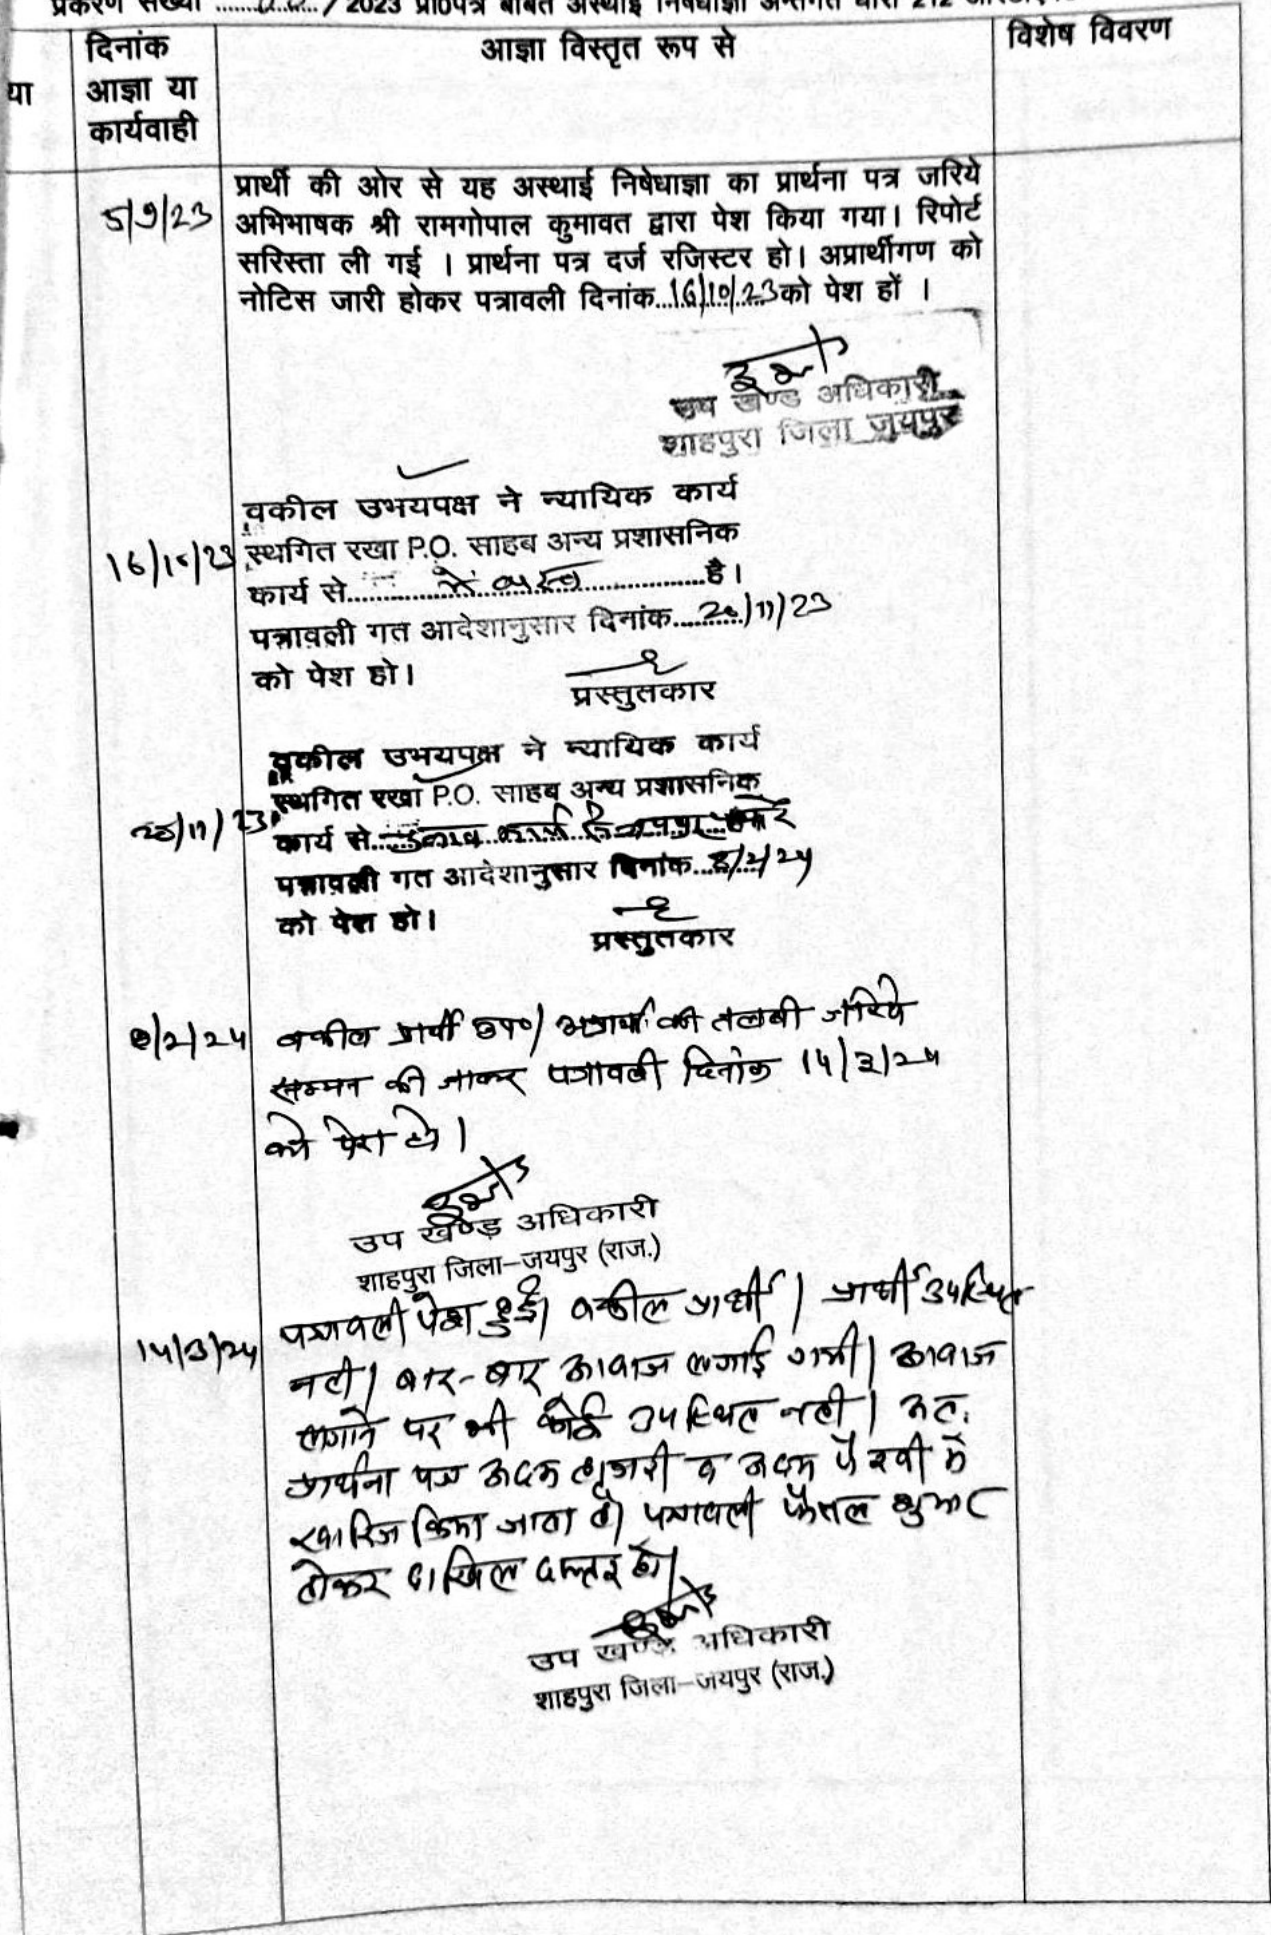 प्रकरण संख्या ............... / 2023 प्रा०पत्र बाबत अस्थाई निषेधाज्ञा अन्तर्गत धारा 212
या
दिनांक
आज्ञा या
कार्यवाही
आज्ञा विस्तृत रूप से
विशेष विवरण
5/9/23
प्रार्थी की ओर से यह अस्थाई निषेधाज्ञा का प्रार्थना पत्र जरिये
अभिभाषक श्री रामगोपाल कुमावत द्वारा पेश किया गया। रिपोर्ट
सरिस्ता ली गई । प्रार्थना पत्र दर्ज रजिस्टर हो। अप्रार्थीगण को
नोटिस जारी होकर पत्रावली दिनांक..16/10/23 को पेश हों ।
उप खण्ड अधिकारी
शाहपुरा जिला जयपुर
वकील उभयपक्ष ने न्यायिक कार्य
16/10/23 स्थगित रखा P.O. साहब अन्य प्रशासनिक
कार्य से........में व्यस्त.............है।
पत्रावली गत आदेशानुसार दिनांक....20/11/23
को पेश हो।
प्रस्तुतकार
वकील उभयपक्ष ने न्यायिक कार्य
स्थगित रखा P.O. साहब अन्य प्रशासनिक
20/11/23 कार्य से...चुनाव कार्य
पत्रावली गत आदेशानुसार दिनांक...8/2/24
को पेश हो।
प्रस्तुतकार
8/2/24 वकील प्रार्थी उप०/ अप्रार्थी की तलबी जरिये
सम्मन की जाकर पत्रावली दिनांक 14/3/24
को पेश हो।
उप खण्ड अधिकारी
शाहपुरा जिला-जयपुर (राज.)
14/3/24 पत्रावली पेश हुई। वकील प्रार्थी / प्रार्थी उपस्थित
नही। बार-बार आवाज लगाई गयी। आवाज
लगाने पर भी कोई उपस्थित नही। अतः
प्रार्थना पत्र अदम हाजरी व अदम पैरवी में
खारिज किया जाता है। पत्रावली फैसल शुमार
होकर दाखिल दफ्तर हो।
उप खण्ड अधिकारी
शाहपुरा जिला-जयपुर (राज.)